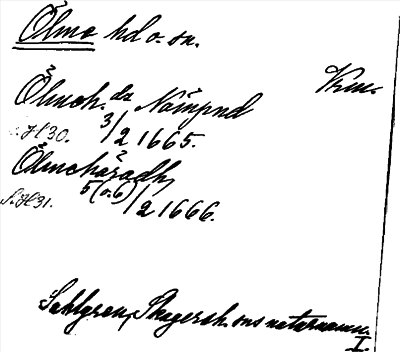 Ölme hd o. sn.
Vrm.
Ölmeh. dz Nämpnd
s. H 30. 3/2 1665.
Ölmehäradh
s. H 31. 5(o. 6)/2 1666.
Sahlgren, Skagersh. sns naturnamn.
I.